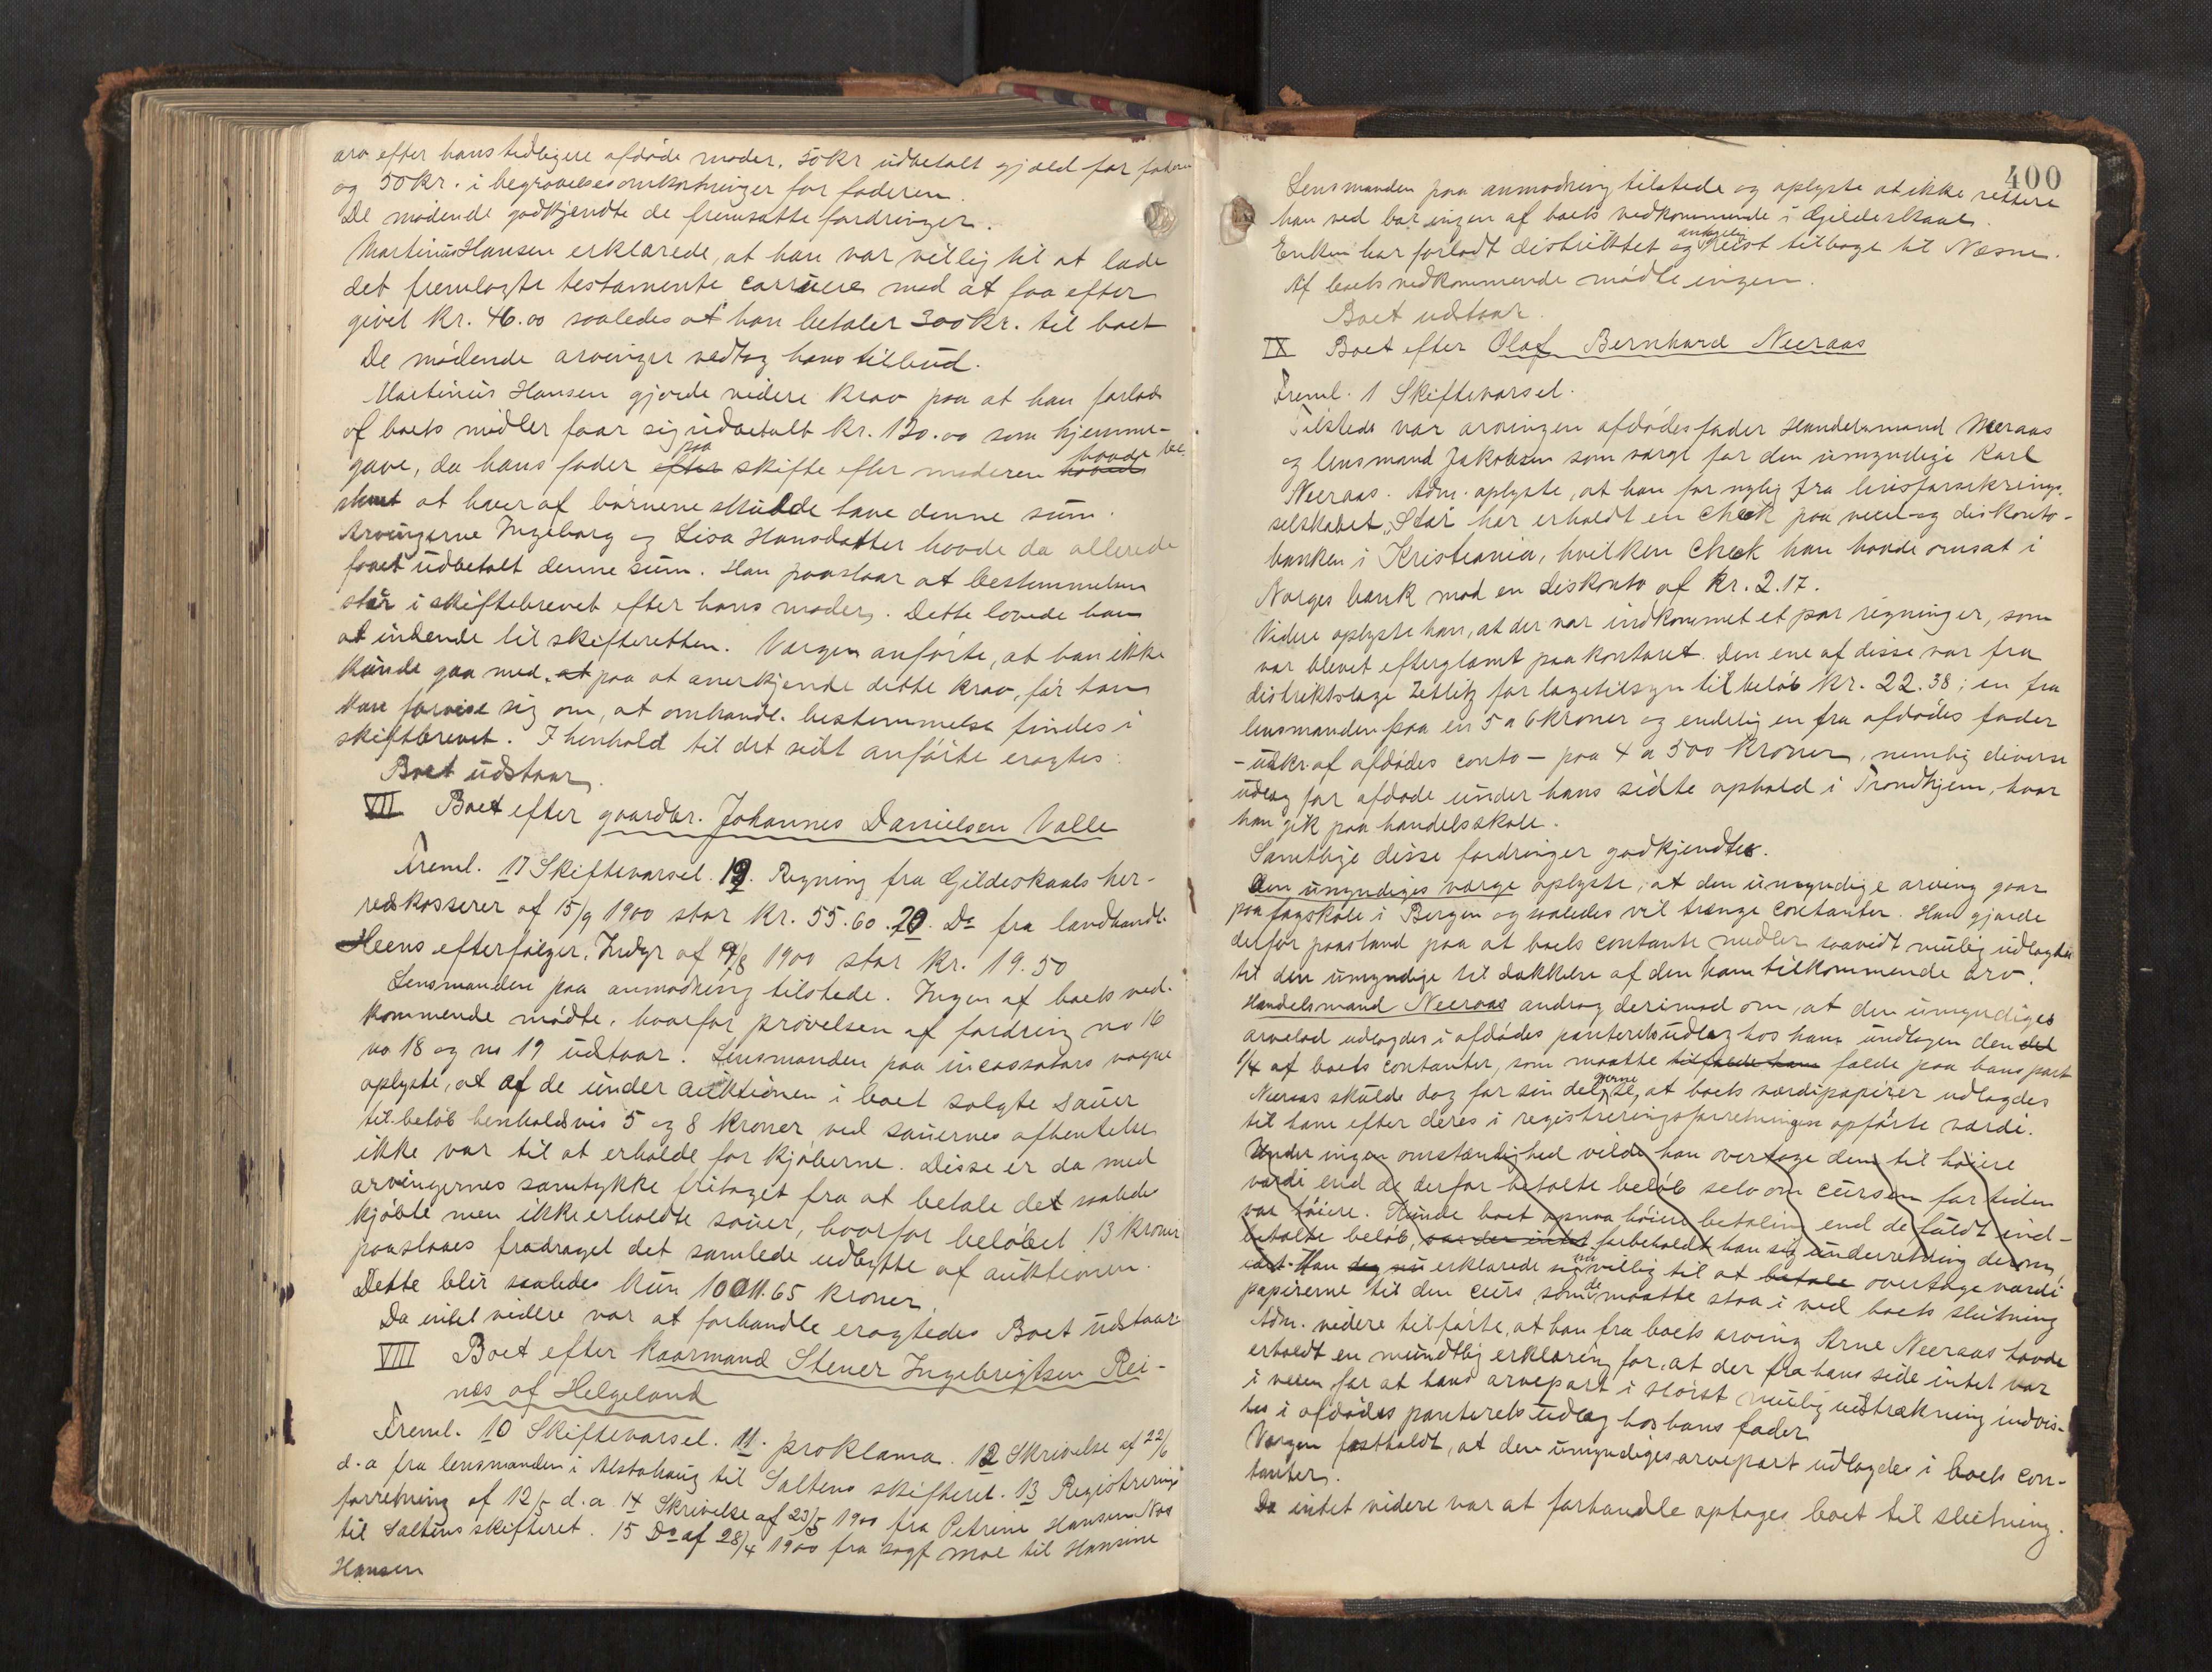 arv efter hans tidligere afdøde moder, 50 kr udbetalt gjæld for faderen
og 50 kr. i begravelsesomkostninger for faderen.
De mødende godkjendte de fremsatte fordringer.
Martinus Hansen erklærede, at han var villig til at lade
det fremlagte testamente carruere mod at faa efter
givet kr. 46.00 saaledes at han betaler 300 kr. til boet
De mødende arvinger vedtog hans tilbud.
Martinus Hansen gjorde videre krav paa at han forlods
af boets midler faar sig udbetalt kr. 120.00 som hjemme-
gave, da hans fader efter paa skifte efter moderen havde havde be-
stemt at hver af børnene skulde have denne sum.
Arvingerne Ingeborg og Lisa Hansdatter havde da allerede
faaet udbetalt denne sum. Han paastaar at bestemmelsen
står i skiftebrevet efter hans moder. Dette lovede han
at indsende til skifteretten. Vargen anførte, at han ikke
kunde gaa med at paa at anerkjende dette krav, før han
kan forvise sig om, at omhandl. bestemmelse findes i
skiftebrevet. I henhold til det sidt anførte eragtes:
Boet udstaar.
VII Boet efter gaardbr. Johannes Danielsen Valle
Freml. 17 Skiftevarsel. 19. Regning fra Gildeskaals her-
redskasserer af 15/9 1900 stor kr. 55.60. 20. Do fra landhandl.
Heens efterfølger, Indyr af 9/8 1900 stor kr. 19.50
Lensmanden paa anmodning tilstede. Ingen af boets ved-
kommende mødte, hvorfor prøvelsen af fordring no 16
no 18 og no 19 udstaar. Lensmanden paa incassators vegne
oplyste, at af de under auktionen i boet solgte sauer
til beløb henholdsvis 5 og 8 kroner ved sauernes afhentelse
ikke var til at erholde for kjøberne. Disse er da med
arvingernes samtykke fritaget fra at betale det saaledes
kjøbte men ikke erholdte sauer, hvorfor beløbet 13 kroner
paastaaes fradraget det samlede udbytte af auktionen.
Dette blir saaledes kun 1001.65 kroner.
Da intet videre var at forhandle eragtedes Boet udstaar
VIII Boet efter kaarmand Stener Ingebrigtsen Rei-
næs af Helgeland
Freml. 10 Skiftevarsel. 11. proklama. 12 Skrivelse af 22/6
d.a fra lensmanden i Alstahaug til Saltens skifteret. 13 Registrerings
forretning af 12/5 d.a. 14 Skrivelse af 23/5 1900 fra Petrine Hansen Nas
til Saltens skifteret. 15 Do af 28/4 1900 fra sagf. Moe til Hansine
Hansen
400
Lensmanden paa anmodning tilstede og oplyste at ikke rettere
han ved bor ingen af boets vedkommende i Gildeskaal.
Enken har forladt distriktet og antagelig reist tilbage til Næsne.
Af boets vedkommende mødte ingen.
Boet udstaar.
IX Boet efter Olaf Bernhard Neeraas
Freml. 1 Skiftevarsel.
Tilstede var arvingen afdødes fader Handelsmand Neeraas
og lensmand Jakobsen som værge for den umyndige Karl
Neeraas. Adm. oplyste, at han for nylig fra livsforsikrings-
selskabet „Star" har erholdt en check paa vexel og diskonto-
banken i Kristiania, hvilken check han havde omsat i
Norges bank mod en diskonto af kr. 2.17.
Videre oplyste han, at der var indkommet et par regninger, som
var blevet efterglemt paa kontoret. Den ene af disse var fra
distriktslæge Zetlitz for lægetilsyn til beløb kr. 22.38; en fra
lensmanden paa en 5 a 6 kroner og endelig en fra afdødes fader
- udskr. af afdødes conto - paa 4 a 500 kroner, nemlig diverse
udlæg for afdøde under hans sidste ophold i Trondhjem, hvor
han gik paa handelsskole.
Samtlige disse fordringer godkjendtes.
Den umyndiges værge oplyste, at den umyndige arving gaar
paa fagskole i Bergen og saaledes vil trænge contanter. Han gjorde
derfor paastand paa at boets contante midler saavidt mulig udlagdes
til den umyndige til dækkelse af den ham tilkommende arv.
Handelsmand Neeraas androg derimod om, at den umyndiges
arvelod udlagdes i afdødes panteretsudlæg hos ham undtagen den del
1/4 af boets contanter, som maatte tilfalde ham falde paa hans part
Neeraas skulde dog for sin del gjerne se, at boets værdipapirer udlagdes
til ham efter deres i registreringsforretningen opførte værdi.
Under ingen omstændighed vilde han overtage dem til høiere
værdi end de derfor betalte beløb selv om cursen for tiden
var høiere. Kunde boet opnaa høiere betaling end de fuldt ind-
betalte beløb, var der intet forbeholdt han sig underretning derom,
idet Han sig nu erklærede sig nu villig til at betale overtage værdi
papirerne til den curs, som de maatte staa i ved boets slutning
Adm. videre tilførte, at han fra boets arving Arne Neeraas havde
erholdt en mundtlig erklæring for, at der fra hans side intet var
i veien for at hans arvepart i størst mulig udstrækning indvis-
tes i afdødes panterets udlæg hos hans fader
Værgen fastholdt, at den umyndiges arvepart udlagdes i boets con-
tanter.
Da intet videre var at forhandle optoges boet til slutning.